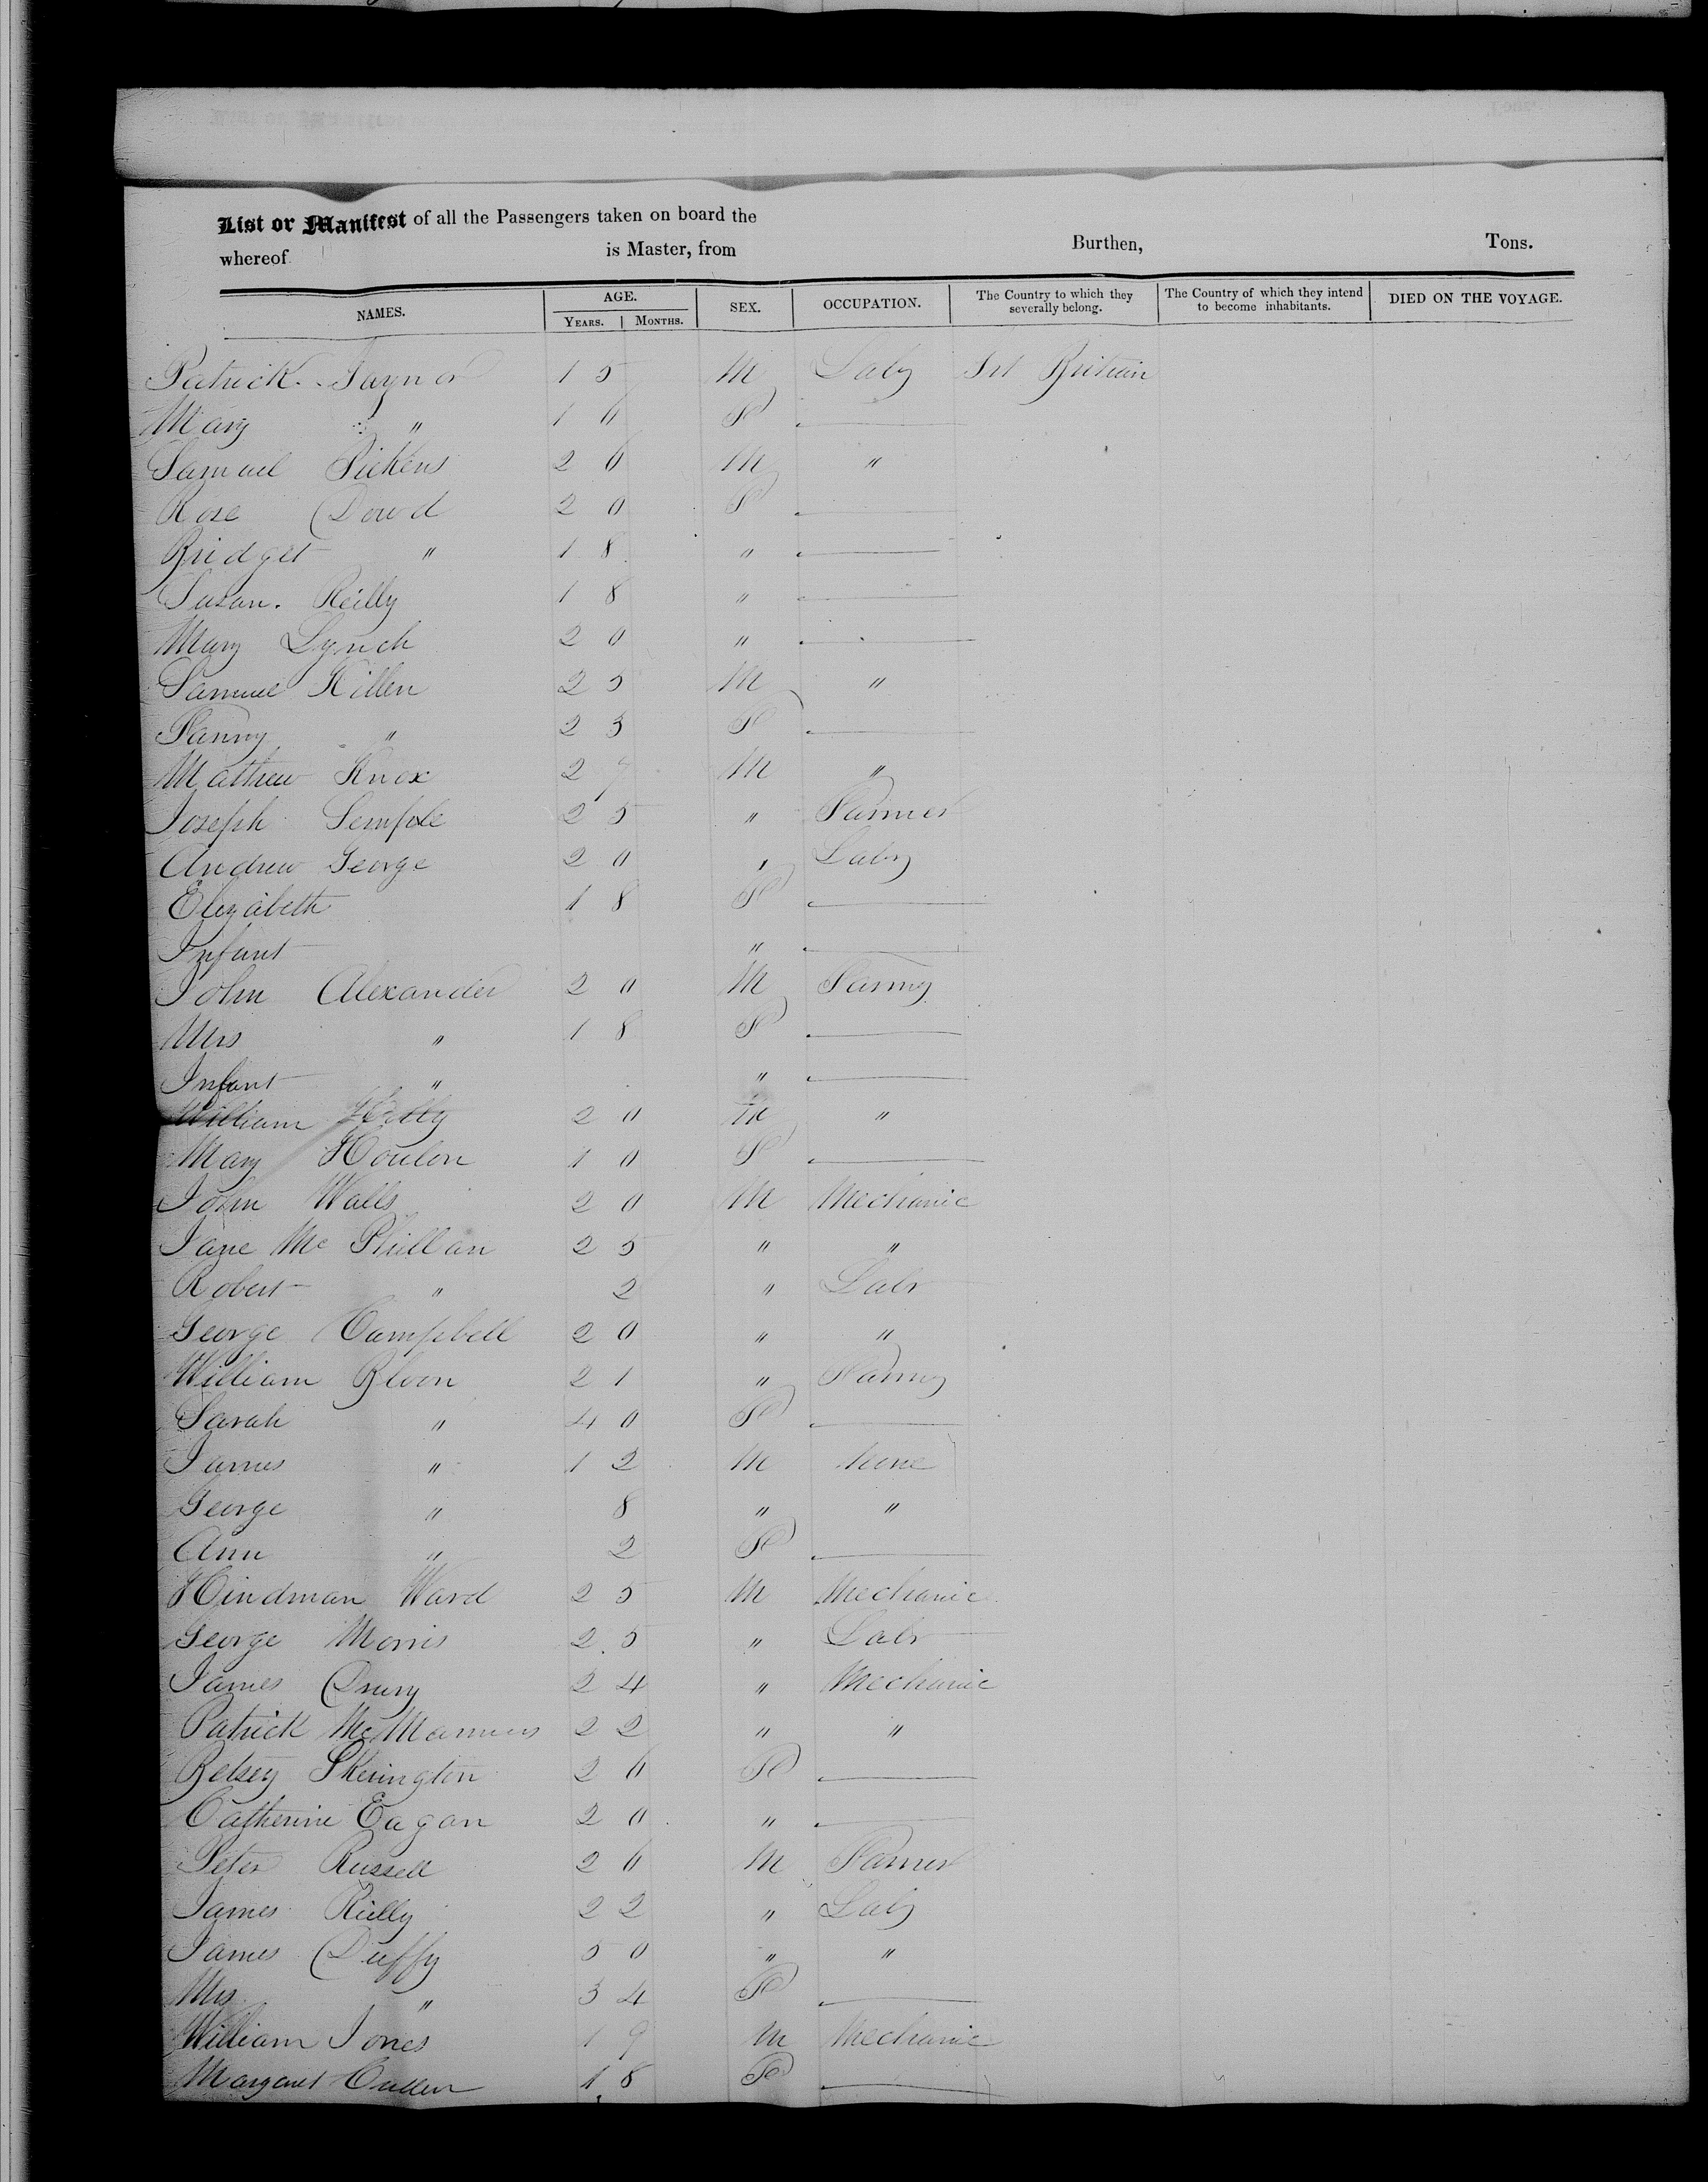 List or Manifest of all the Passengers taken on board the
whereof is Master, from Burthen, Tons.
NAMES. AGE. YEARS. MONTHS. SEX. OCCUPATION. The Country to which they severally belong. The Country of which they intend to become inhabitants. DIED ON THE VOYAGE.
Patrick Gaynor 15 M Labr Grt Britain
Mary " 16 F
Samuel Pickens 26 M "
Rose Dowd 20 F
Bridget " 18 "
Susan. Reilly 18 "
Mary Lynch 20 "
Samuel Killen 25 M "
Fanny " 23 F
Mathew Knox 27 M "
Joseph Semple 25 " Farmer
Andrew George 20 " Labr
Elizabeth 18 F
Infant "
John Alexander 20 M Farmr
Mrs " 18 F
Infant " "
William 20 M "
Mary 10 F
John Walls 20 M Mechanic
Jane Mc 25 " "
Robert " 2 " Labr
George Campbell 20 " "
William 21 " Farmr
Sarah " 40 F
James " 12 M None
George " 8 " "
Ann " 2 F
Hindman Ward 25 M Mechanic
George Morris 25 " Labr
James Drury 24 " Mechanic
Patrick McMannus 22 " "
Betsey Skerington 26 F
Catherine Eagan 20 "
Peter Russell 26 M Farmer
James Rielly 22 " Labr
James Duffy 50 " "
Mrs " 34 F
William Jones 19 M Mechanic
Margaret Cullen 18 F